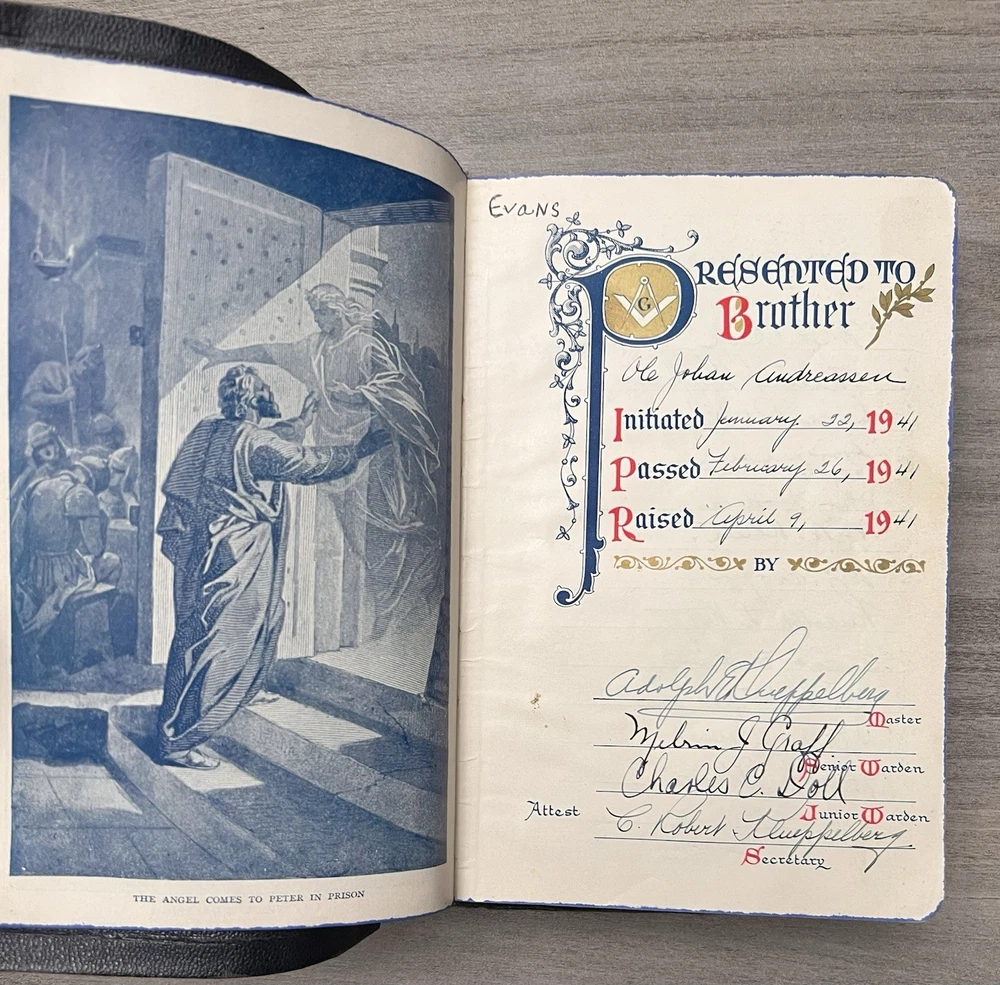 THE ANGEL COMES TO PETER IN PRISON
Evans
PRESENTED TO
Brother
G
Ole Johan Andreassen
Initiated January 22, 1941
Passed February 26, 1941
Raised April 9, 1941
BY
Adolph E Klueppelberg
Master
Melvin J Graff
Senior Warden
Charles C. Doll
Junior Warden
Attest C. Robert Klueppelberg
Secretary